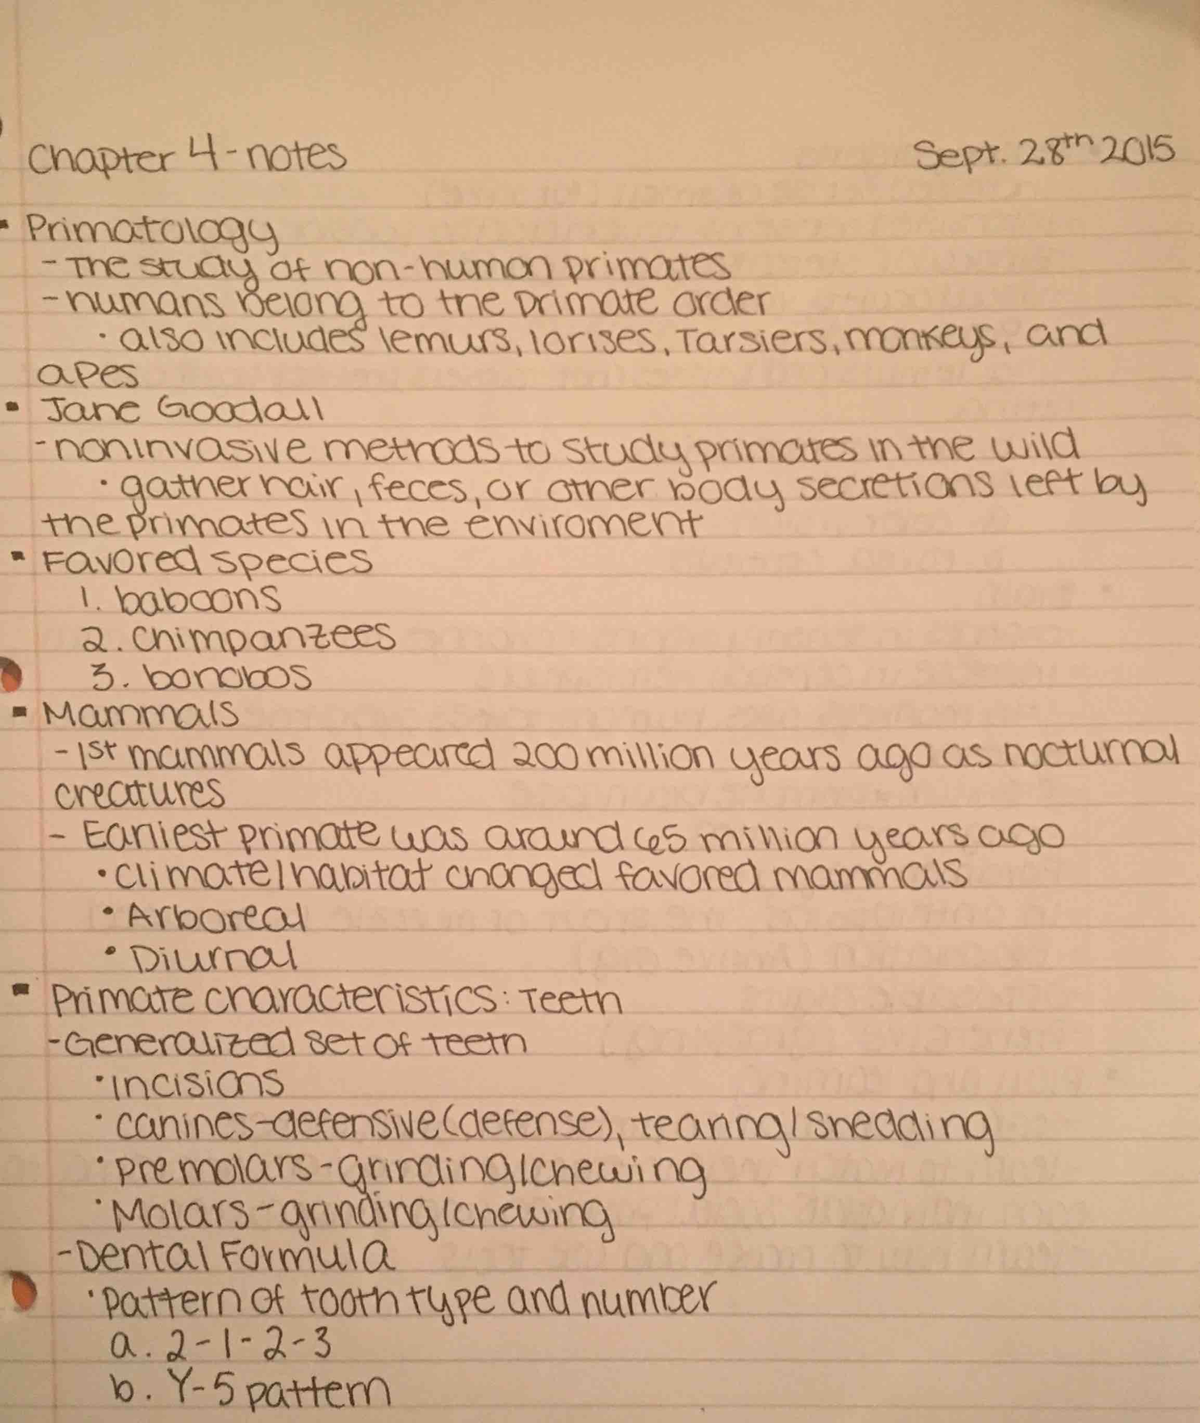 Chapter 4-notes
Sept. 28th 2015
▪ Primatology
- The study of non-human primates
- humans belong to the primate order
• also includes lemurs, lorises, Tarsiers, monkeys, and
apes
▪ Jane Goodall
- noninvasive methods to study primates in the wild
• gather hair, feces, or other body secretions left by
the primates in the enviroment
▪ Favored species
1. baboons
2. chimpanzees
3. bonobos
▪ Mammals
- 1st mammals appeared 200 million years ago as nocturnal
creatures
- Earliest primate was around 65 million years ago
• climate/habitat changed favored mammals
• Arboreal
• Diurnal
▪ Primate characteristics: Teeth
- Generalized set of teeth
• incisions
• canines-defensive (defense), tearing/shedding
• premolars-grinding/chewing
• Molars-grinding/chewing
- Dental Formula
• pattern of tooth type and number
a. 2-1-2-3
b. Y-5 pattern